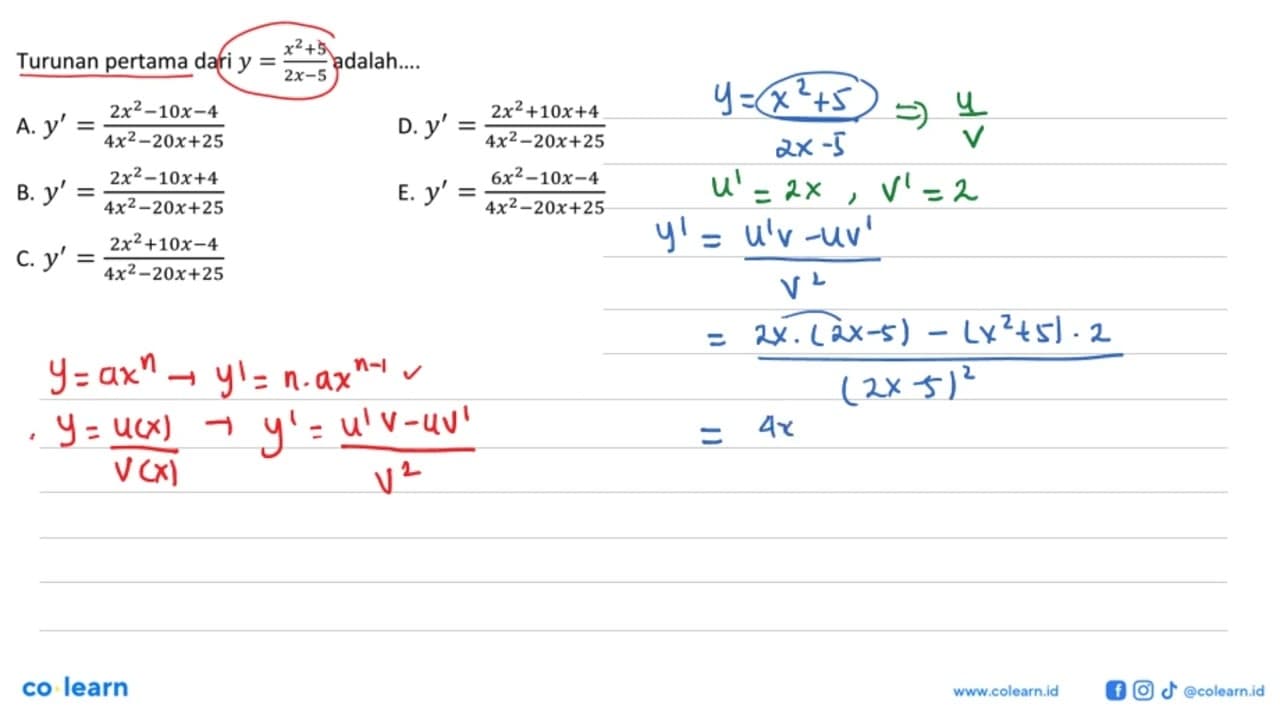 Turunan pertama dari y = (x²+5)/(2x−5) adalah....
A. y′ = (2x²−10x−4)/(4x²−20x+25)
B. y′ = (2x²−10x+4)/(4x²−20x+25)
C. y′ = (2x²+10x−4)/(4x²−20x+25)
D. y′ = (2x²+10x+4)/(4x²−20x+25)
E. y′ = (6x²−10x−4)/(4x²−20x+25)
y = ax^n → y' = n.ax^(n-1) ✓
. y = u(x)/v(x) → y' = (u'v-uv')/v²
y = (x²+5)/(2x-5) ⇒ u/v
u' = 2x , v' = 2
y' = (u'v-uv')/v²
= (2x.(2x-5) - (x²+5).2)/(2x-5)²
= 4x
co learn
www.colearn.id
@colearn.id